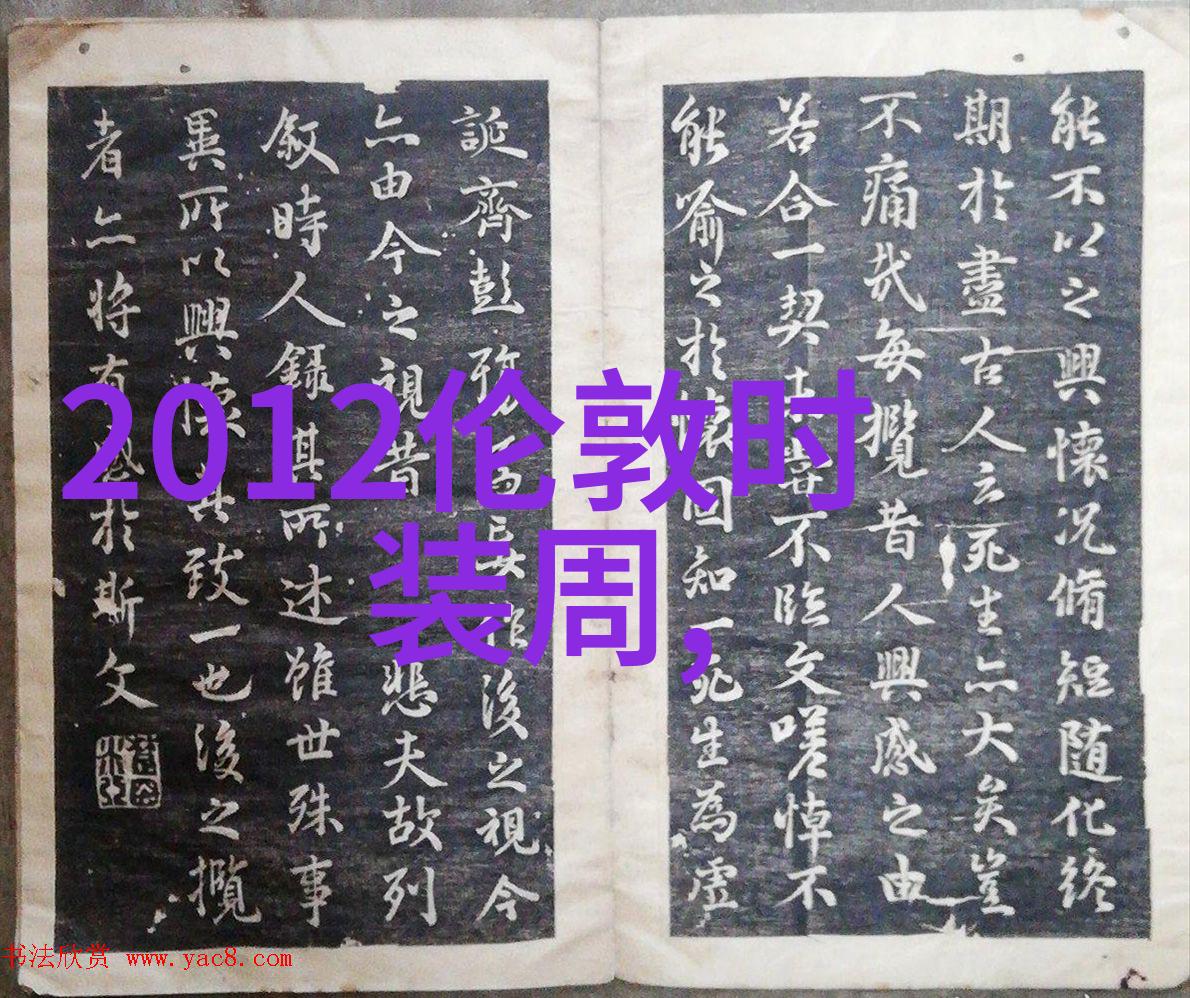 能不以之興懷况脩短随化終
期於盡古人云死生亦大矣豈
不痛哉每攬昔人興感之由
若合一契未嘗不臨文嗟悼不
能喻之於懷固知一死生為虛
誕齊彭殤為妄作後之視今
亦由今之視昔悲夫故列
叙時人録其所述雖世殊事
異所以興懷其致一也後之攬
者亦將有感於斯文
2012伦敦时
装周,
书法欣赏 www.yac8.com